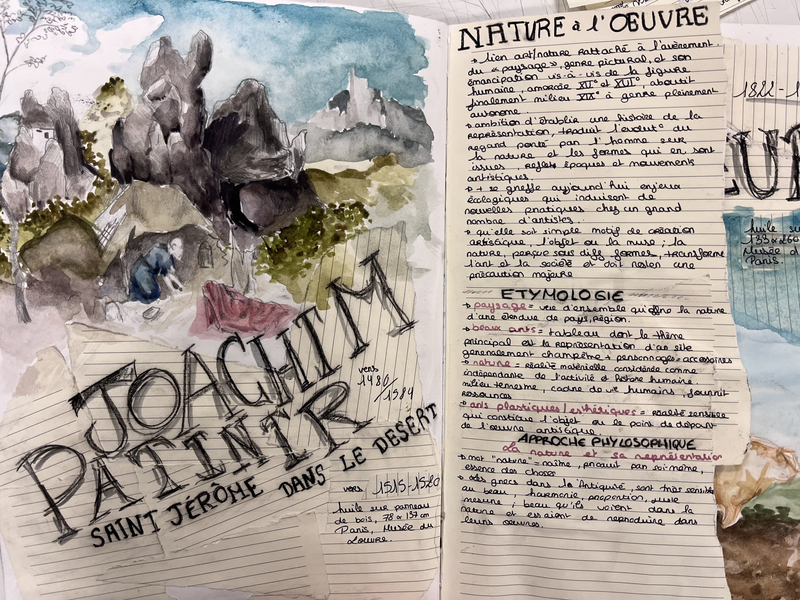 JOACHIM
PATINIR
SAINT JÉRÔME DANS LE DESERT
vers
1480
/1584
vers 1515-1520
huile sur panneau
de bois, 78 x 137 cm
Paris, Musée du
Louvre.
NATURE à l'ŒUVRE
→ lien art/nature rattaché à l'avènement
du «paysage», genre pictural, et son
émancipation vis-à-vis de la figure
humaine, amorcée XVI° et XVII°, aboutit
finalement milieu XIX° à genre pleinement
autonome
→ ambition d'établir une histoire de la
représentation, traduit l'évolut° du
regard porté par l'homme sur
la nature et les formes qui en sont
issues : reflets époques et mouvements
artistiques
→ + se greffe aujourd'hui enjeux
écologiques qui induisent de
nouvelles pratiques chez un grand
nombre d'artistes.
→ qu'elle soit simple motif de création
artistique, l'objet ou la muse ; la
nature, perçue sous diff formes, transforme
l'art et la société et doit rester une
précaution majeure
ETYMOLOGIE
→ paysage = vue d'ensemble qu'offre la nature
d'une étendue de pays, région.
→ beaux arts = tableau dont le thème
principal est la représentation d'un site
généralement champêtre + personnages = accessoires
→ nature = réalité matérielle considérée comme
indépendante de l'activité et histoire humaine.
milieu terrestre, cadre de vie humains, fournit
ressources
→ arts plastiques / esthétiques = réalité sensible
qui constitue l'objet ou le point de départ
de l'œuvre artistique.
APPROCHE PHYLOSOPHIQUE
La nature et sa représentation
→ mot "nature" = naître, par soi-même,
essence des choses
→ grecs dans l'Antiquité, sont très sensibles
au beau, harmonie, proportion, juste
mesure ; beau qu'ils voient dans la
nature et essaient de reproduire dans
leurs oeuvres.
1822-1
huile su
Musée d
Paris.